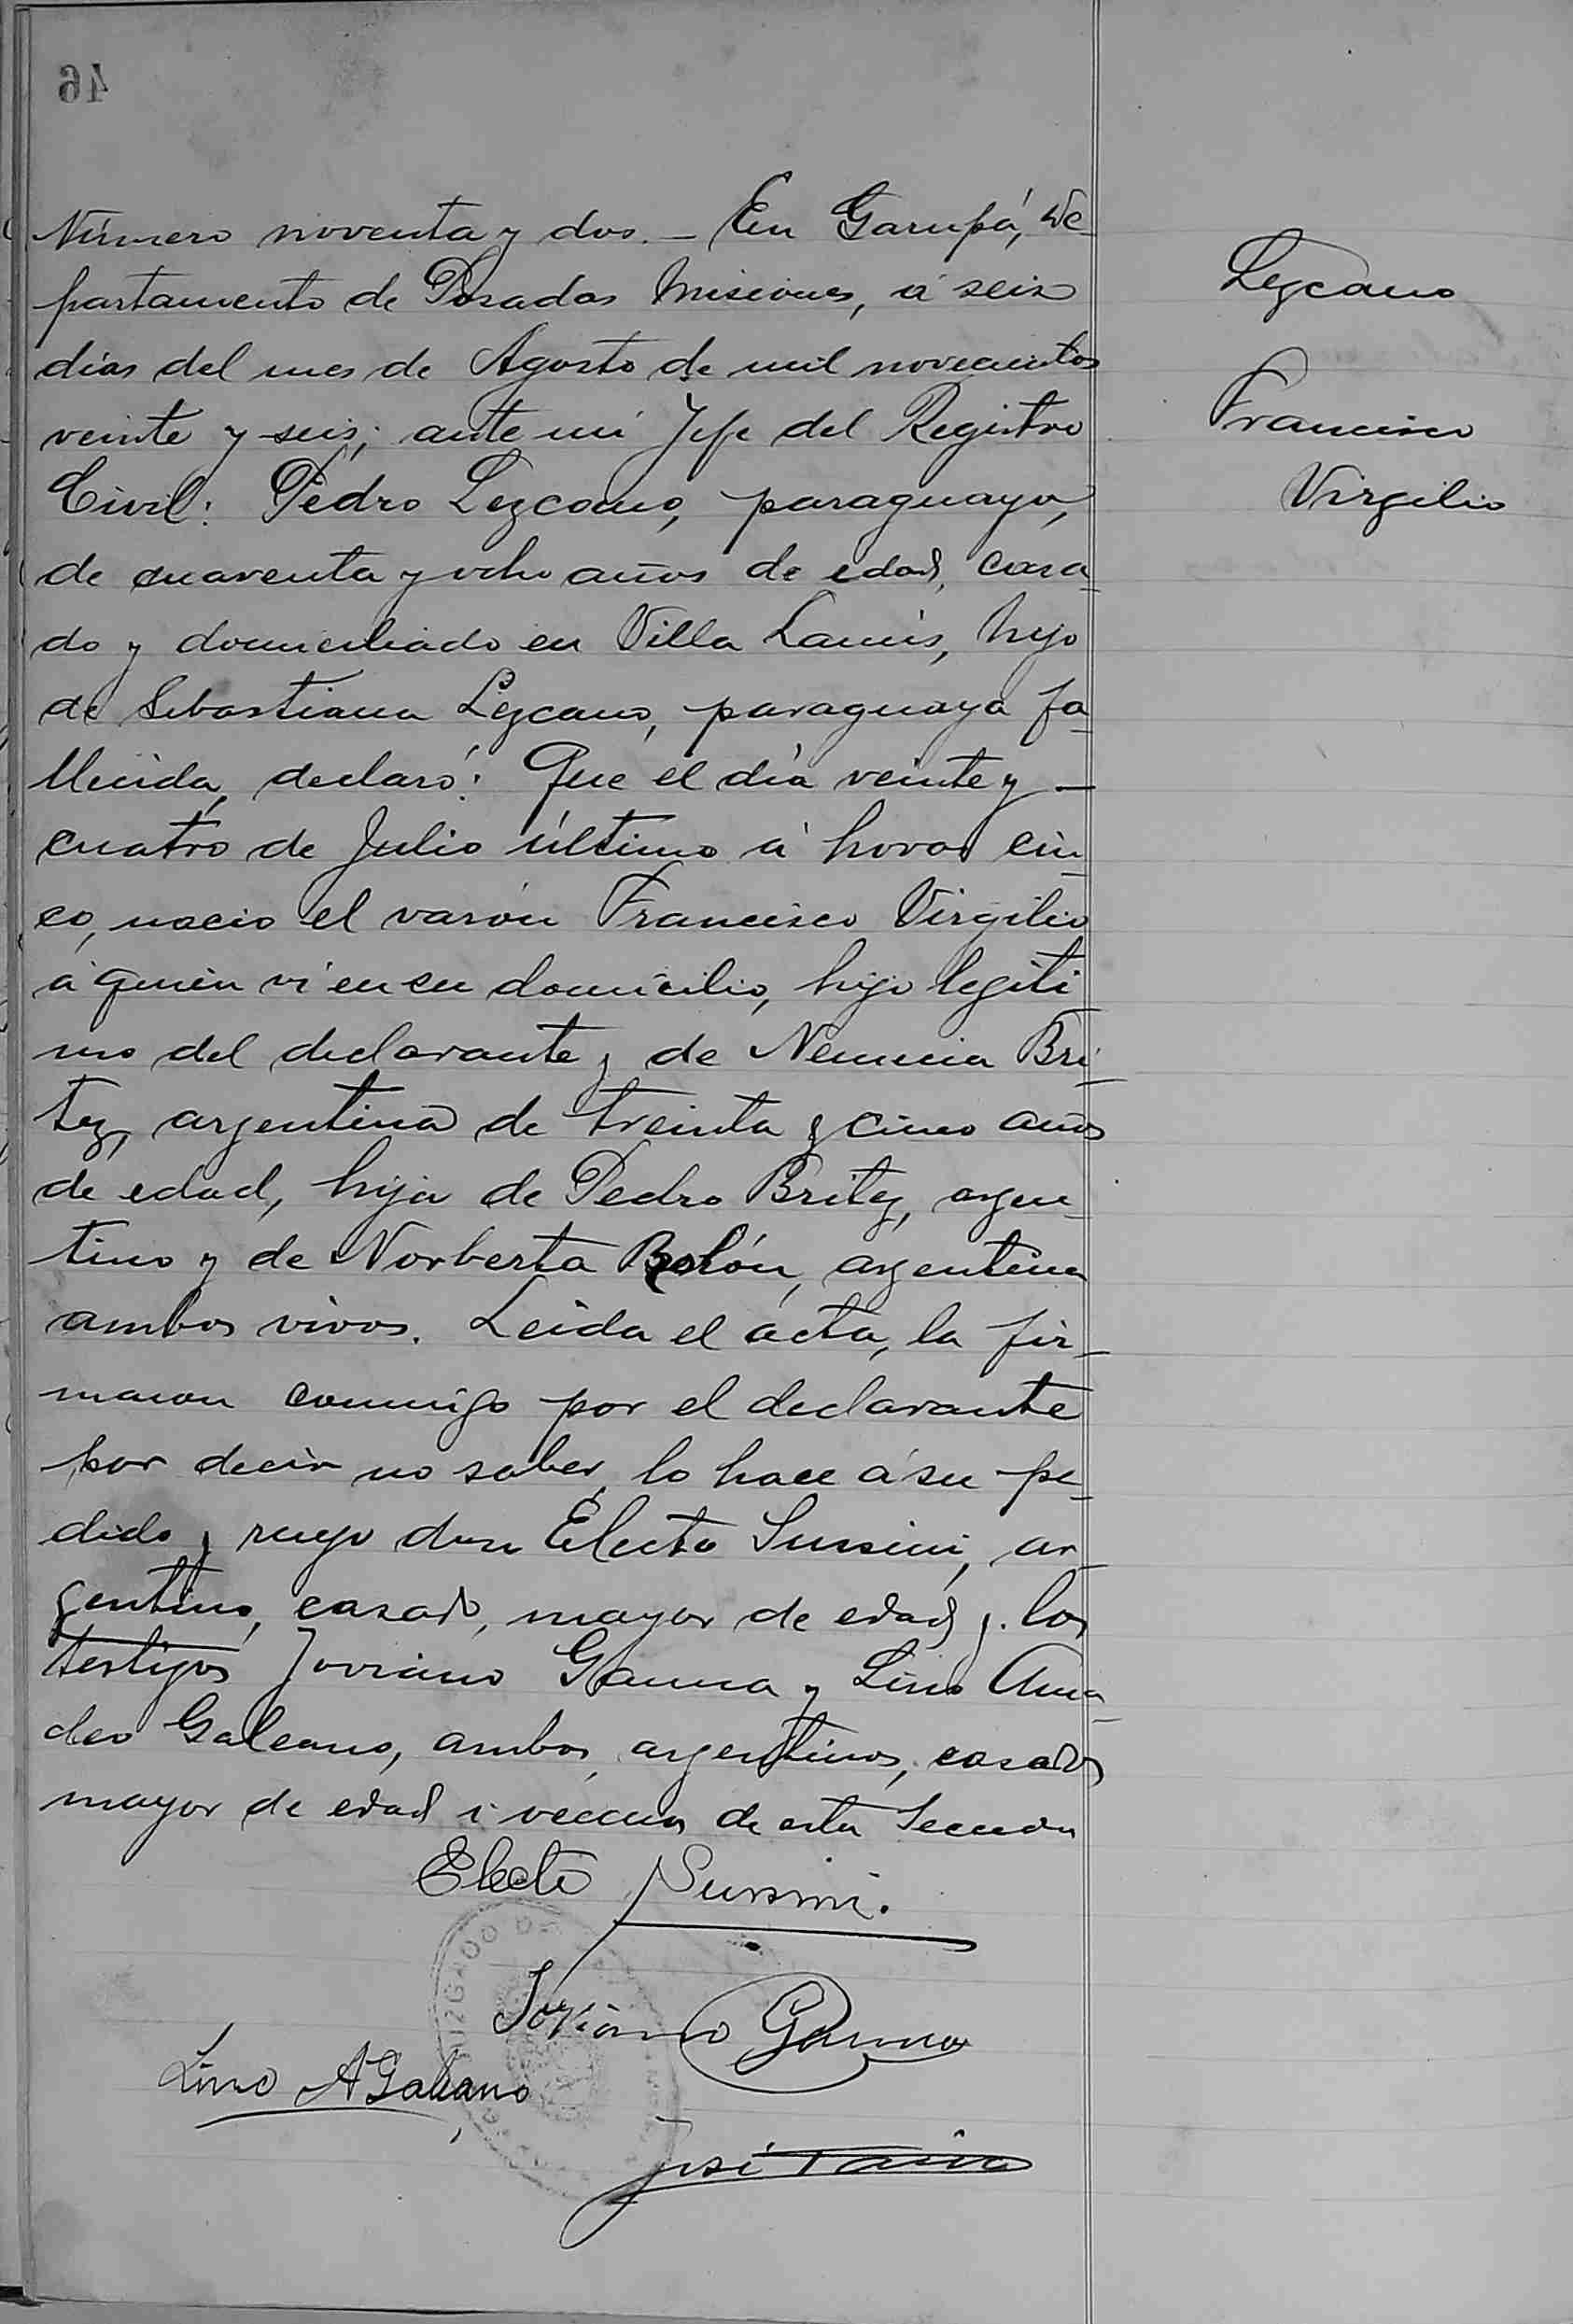 46
Número noventa y dos.— En Garupá, De-
partamento de Posadas Misiones, á seis
días del mes de Agosto de mil novecientos
veinte y seis; ante mí Jefe del Registro
Civil: Pedro Lezcano, paraguayo,
de cuarenta y ocho años de edad, casa-
do y domiciliado en Villa Lanús, hijo
de Sebastiana Lezcano, paraguaya fa-
llecida, declaró: Que el día veinte y —
cuatro de Julio último á horas cin-
co, nació el varón Francisco Virgilio
á quien vi en su domicilio, hijo legíti
mo del declarante y de Nemecia Bri-
tez, argentina de treinta y cinco años
de edad, hija de Pedro Britez, argen-
tino y de Norberta Bolón, argentina
ambos vivos. Leída el acta, la fir-
maron conmigo por el declarante
por decir no saber, lo hace á su pe-
dido y ruego don Electo Sussini, ar-
gentino, casado, mayor de edad y los
testigos Joviano Gauna y Lino Ama-
deo Galeano, ambos argentinos, casados
mayor de edad i vecinos de esta Sección
Electo Sussini.
Joviano Gauna
Lino A Galeano
José
JUZGADO DE
Lezcano
Francisco
Virgilio